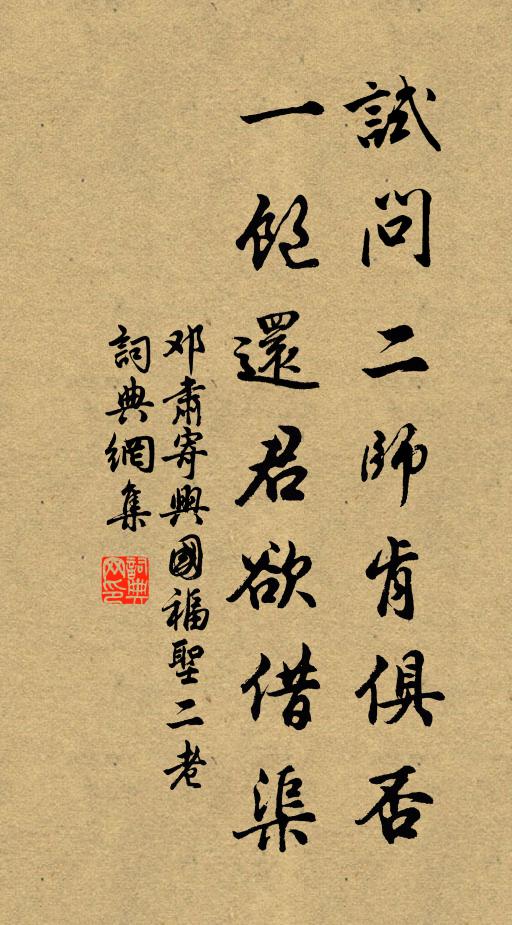 試問二師肯俱否
一飽還君欲借渠
邓肅寄興國福聖二老
詞典網集
詞典網印